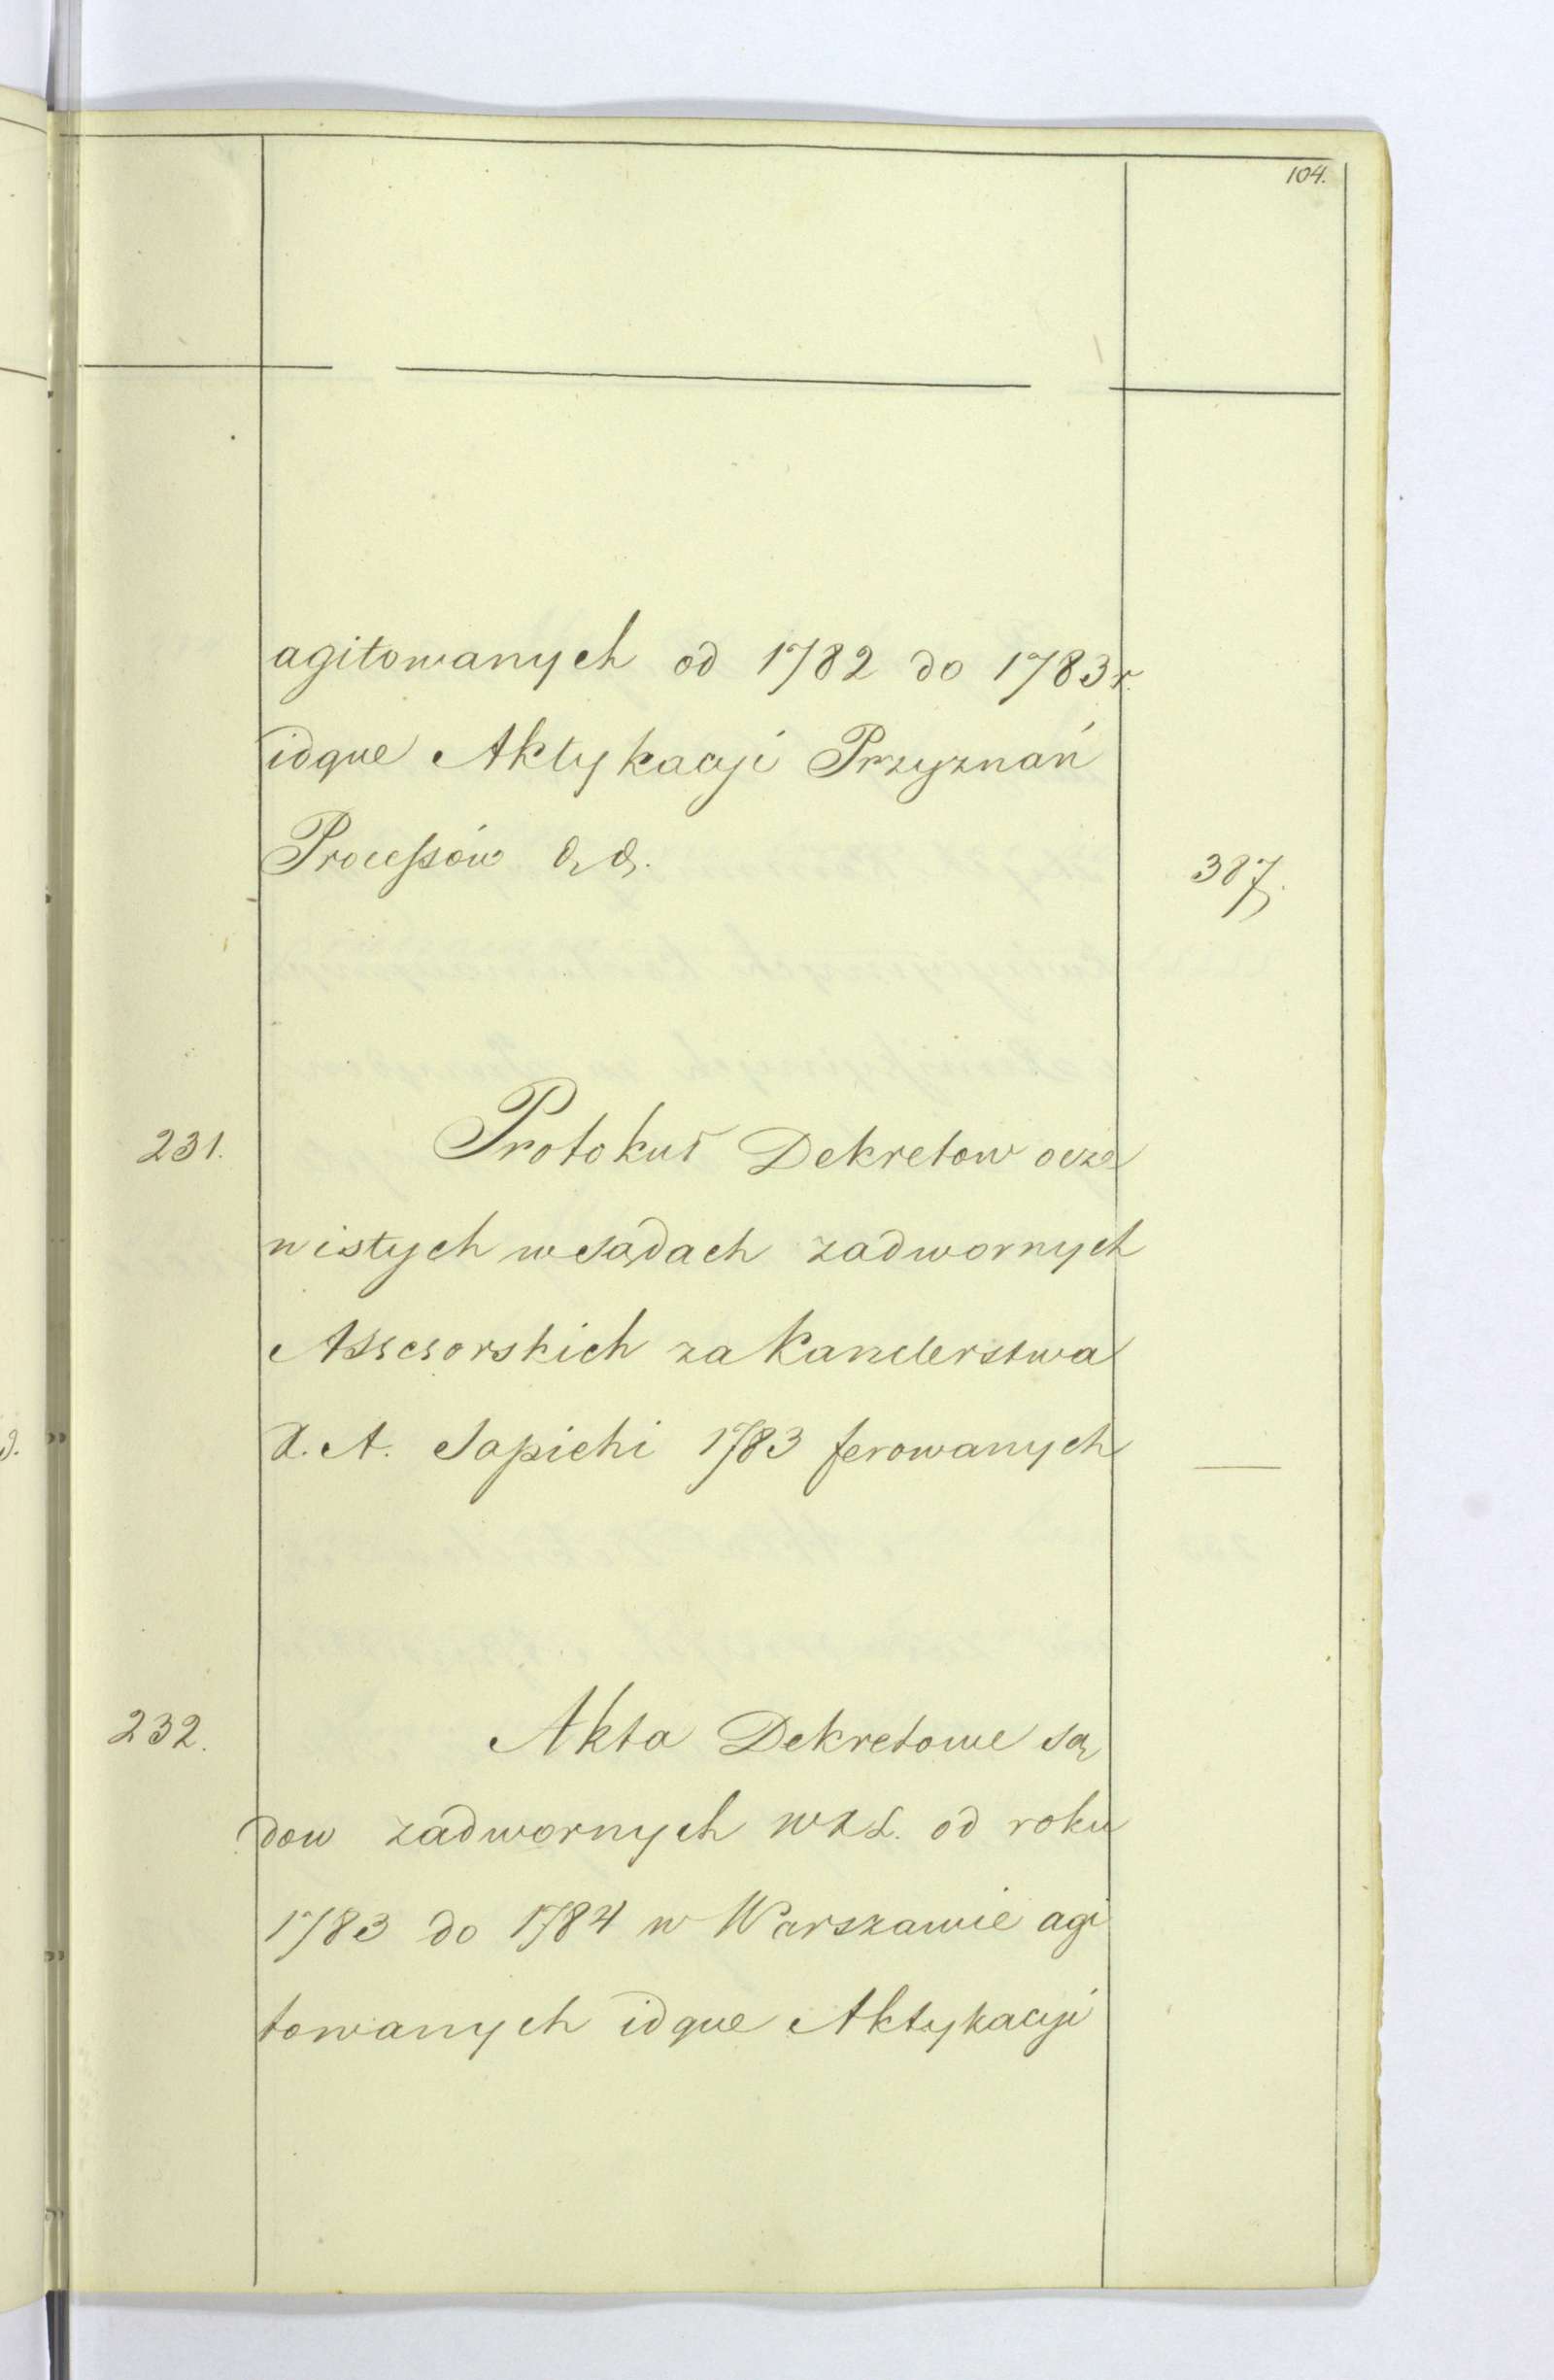 104.
agitowanych od 1782 do 1783 r.
idque Aktykacyi Przyznań
Processów & &. 387.
231. Protokuł Dekretow ocze
wistych w Sądach zadwornych
Assesorskich za Kanclerstwa
X. A. Sapiehi 1783 ferowanych —
232. Akta Dekretowe są
dow zadwornych WXL. od roku
1783 do 1784 w Warszawie agi
towanych idque Aktykacyi